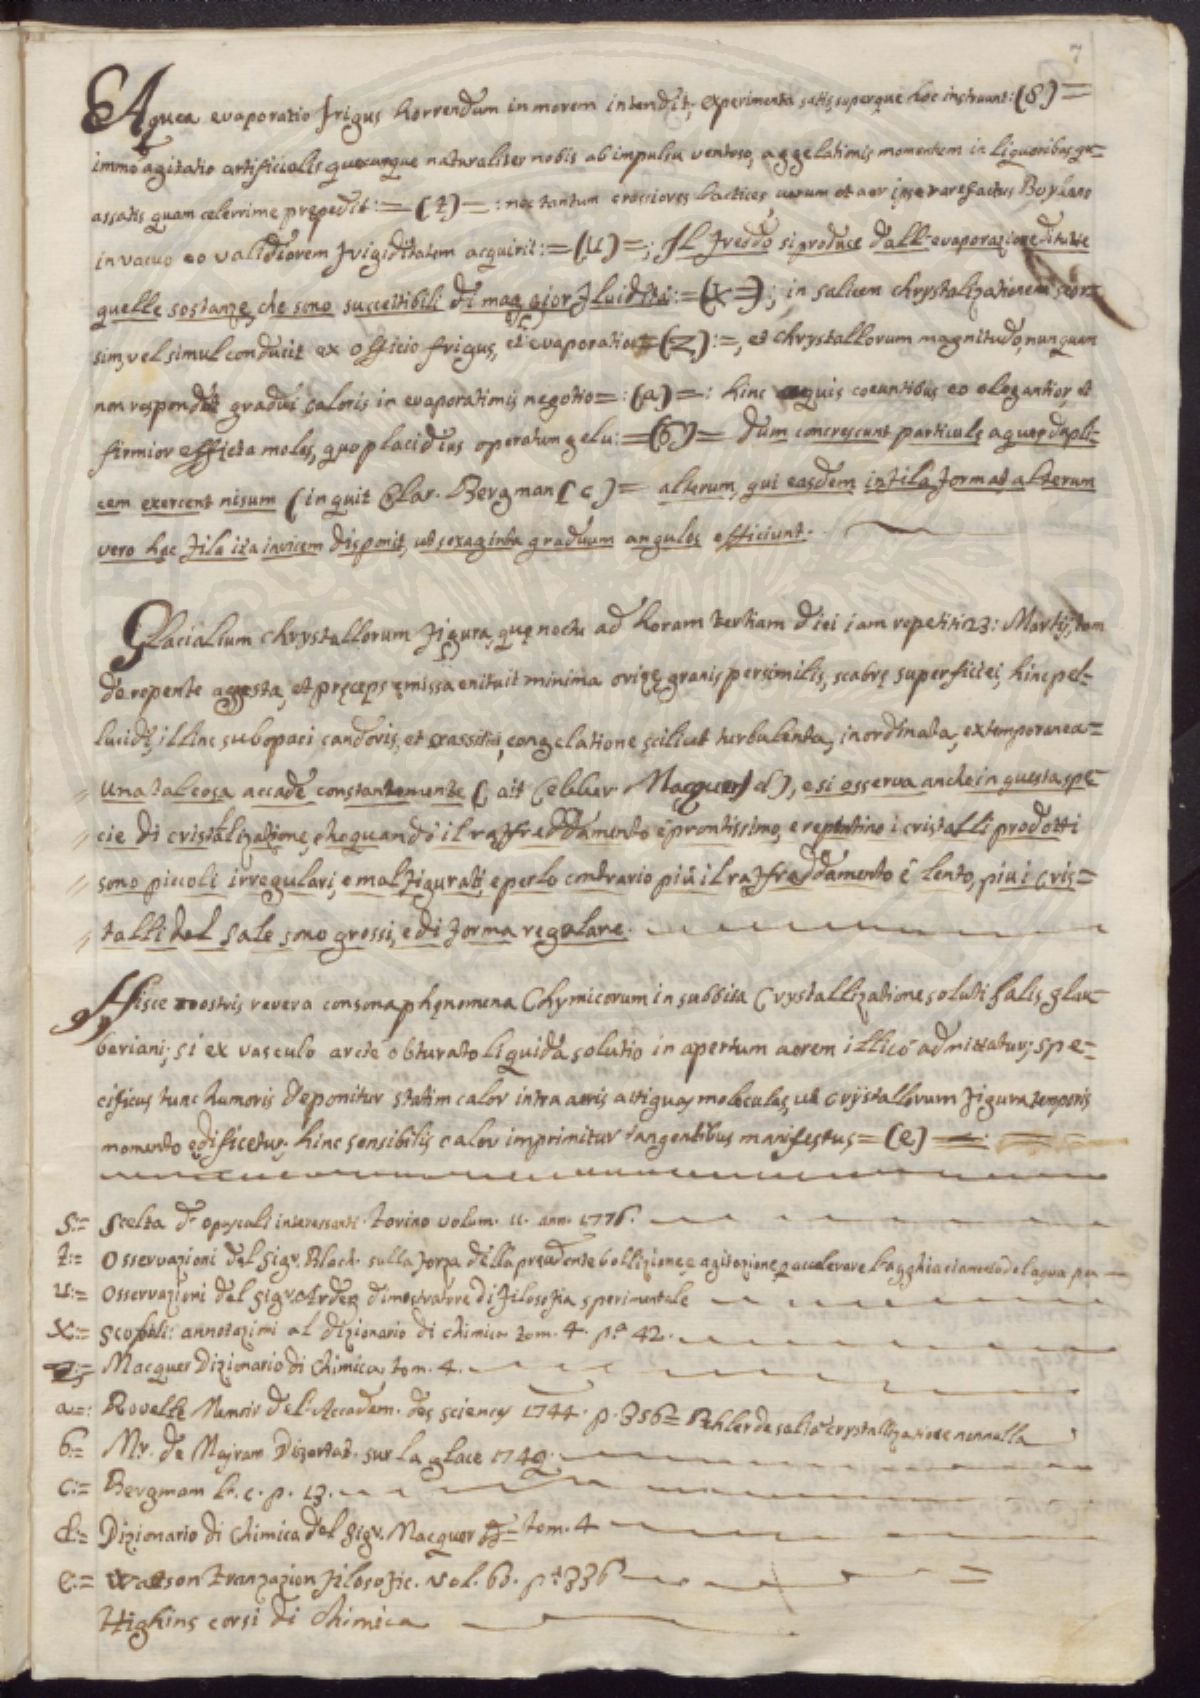 7
Aquea evaporatio frigus horrendum in morem intendit, experimenta satis superque hoc instruunt: (8) =
immo agitatio artificialis quecunque naturaliter nobis ab impulsu ventoso, aggelationis momentum in liquoribus qu=
assatis quam celerrime prępedit: = (t) = : nec tantum crossiores lactices verum et aer ipse rarefactus Boyleano
in vacuo eo validiorem frigiditatem acquirit: = (u) = ; Il freddo si produce dall' evaporazione di tutte
quelle sostanze, che sono suscettibili di maggior fluidità: = (x =) ; in salium chrystalizationem seor=
sim, vel simul conducit ex officio frigus, et evaporatio = (z) : =, et chrystallorum magnitudo, nunquam
non respondit gradui caloris in evaporationis negotio = : (a) = : hinc aquis coeuntibus eo elegantior, et
firmior efficta moles, quo placidius operatum gelu: = (b) = dum concrescunt particulę aquę dupli=
cem exercent nisum (inquit Clar. Bergman (c) = alterum, qui easdem in fila format alterum
vero hęc fila ita invicem disponit, ut sexaginta graduum angulos efficiunt.
Glacialium chrystallorum figura, quę nocte ad horam tertiam diei iam repetiti 23: Martij, tam
de repente agesta, et pręceps emissa enituit minima orizę granis persimilis, scabrę superficiei, hinc pel=
lucidi, illinc subopaci candoris, et crassitiei, congelatione scilicet turbulenta, inordinata, extemporanea =
Una tal cosa accade constantemente (ait Celeber. Macquer) d), e si osserva anche in questa spe=
cie di cristalizazione, che quando il raffreddamento è prontissimo, e repentino i cristalli prodotti
sono piccoli irregulari, e mal figurati, e per lo contrario più il raffreddamento è lento, più i cris=
talli del sale sono grossi, e di forma regolare.
Hisce nostris revera consona phęnomena Chymicorum in subbita Crystallizatione soluti salis glau=
beriani; si ex vasculo arcte obturato liquida solutio in apertum aerem illicò admittatur; spe=
cificus tunc humoris deponitur statim calor intra aeris attiguas moleculas, ut crystallorum figura temporis
momento ędificetur. hinc sensibilis calor imprimitur tangentibus manifestus = (e) =
s:= Scelta d' opuscoli interessanti. Torino volum. 11. ann. 1776.
t:= Osservazioni del Sigr. Black. sulla forza della precedente bollizione e agitazione p accelerare l'agghiacciamento del aqua pu
u:= Osservazioni del Sigr. Arden dimostratore di filosofia sperimentale
x:= Scopoli: annotazioni al dizionario di chimica tom. 4. pa 42.
z:= Macquer Dizionario di chimica tom. 4.
a=: Rouelle Memoir del' Accadem. des sciency 1744. p. 356 = Pehler de saliũ crystallizatione nonnulla
b= Mr. de Majran Disertat. sur la glace 1749.
c:= Bergman l. c. p. 13.
d:= Dizionario di chimica del Sigr. Macquer tom. 4
e:= Watson tranzazion filosofic. vol. 60. pa 336
Highins corsi di chimica